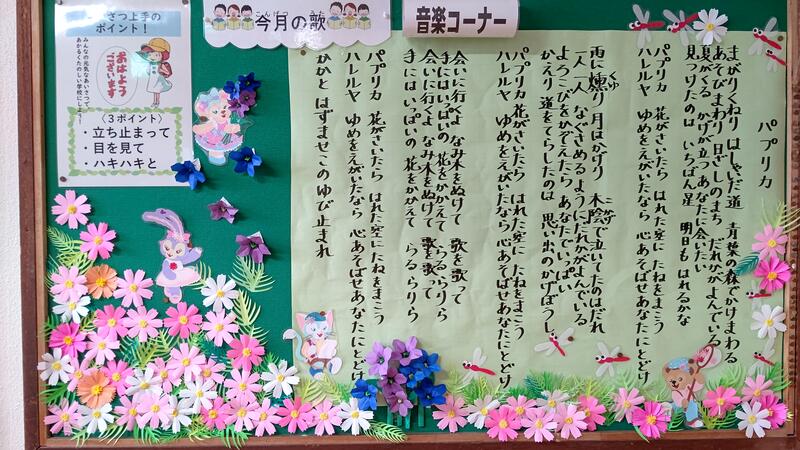 あいさつ上手の
ポイント!
みんなの元気なあいさつで
あかるくたのしい学校にしよう!
おはよう
ございます
〈3ポイント〉
・立ち止まって
・目を見て
・ハキハキと
こんげつ うた
今月の歌
音楽コーナー
パプリカ
まがりくねり はしゃいだ道 青葉の森でかけまわる
あそびまわり 日ざしのまち だれかがよんでいる
夏がくる かげが立つ あなたに会いたい
見つけたのは いちばん星 明日も はれるかな
パプリカ 花がさいたら はれた空に たねをまこう
ハレルヤ ゆめをえがいたなら 心あそばせあなたにとどけ
雨に燻り 月はかげり 木陰で泣いてたのはだれ
一人一人 なぐさめるように だれかがよんでいる
よろこびをかぞえたら あなたでいっぱい
かえり道をてらしたのは 思い出のかげぼうし
パプリカ 花がさいたら はれた空に たねをまこう
ハレルヤ ゆめをえがいたなら 心あそばせあなたにとどけ
会いに行くよ なみ木をぬけて 歌を歌って
手にはいっぱいの 花をかかえて らるらりら
会いに行くよ なみ木をぬけて 歌を歌って
手にはいっぱいの 花をかかえて らるらりら
パプリカ 花がさいたら はれた空に たねをまこう
ハレルヤ ゆめをえがいたなら 心あそばせあなたにとどけ
かかと はずませこのゆび止まれ